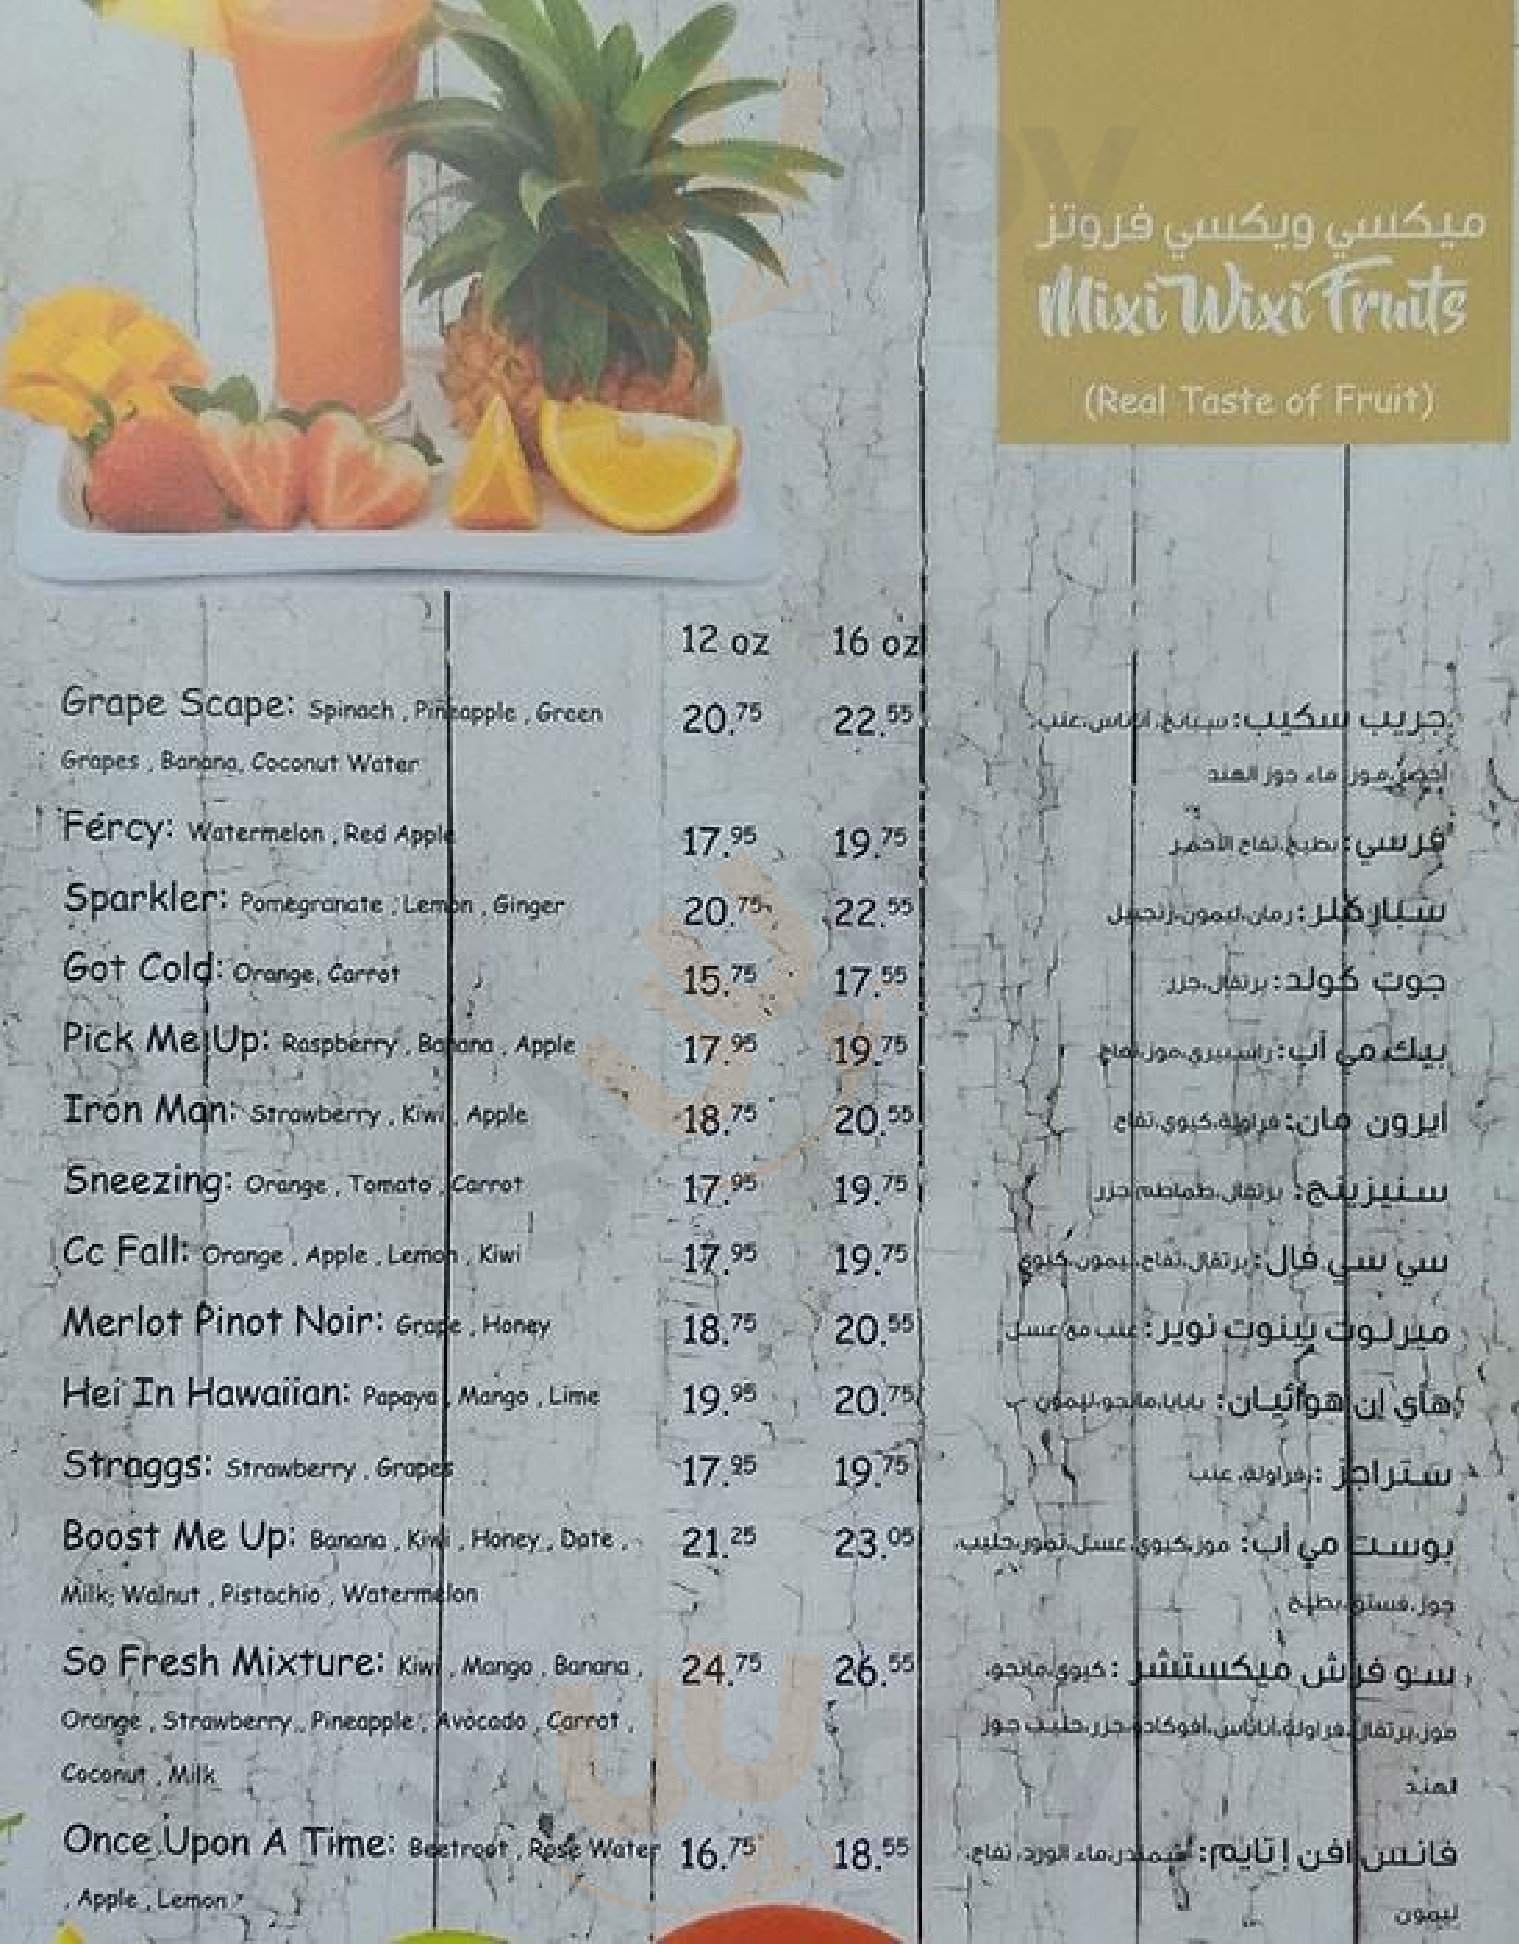 ميكسي ويكسي فروتز
Mixi Wixi Fruits
(Real Taste of Fruit)
12 oz 16 oz
Grape Scape: Spinach , Pineapple , Green 20.75 22.55 جريب سكيب: سبانخ، أناناس، عنب
Grapes , Banana, Coconut Water أخضر، موز، ماء جوز الهند
Fercy: Watermelon , Red Apple 17.95 19.75 فرسي: بطيخ، تفاح الأحمر
Sparkler: Pomegranate , Lemon , Ginger 20.75 22.55 سباركلر: رمان، ليمون، زنجبيل
Got Cold: Orange, Carrot 15.75 17.55 جوت كولد: برتقال، جزر
Pick Me Up: Raspberry , Banana , Apple 17.95 19.75 بيك مي أب: راسبيري، موز، تفاح
Iron Man: Strawberry , Kiwi , Apple 18.75 20.55 ايرون مان: فراولة، كيوي، تفاح
Sneezing: Orange , Tomato , Carrot 17.95 19.75 سنيزينج: برتقال، طماطم، جزر
Cc Fall: Orange , Apple , Lemon , Kiwi 17.95 19.75 سي سي فال: برتقال، تفاح، ليمون، كيوي
Merlot Pinot Noir: Grape , Honey 18.75 20.55 ميرلوت بينوت نوير: عنب مع عسل
Hei In Hawaiian: Papaya , Mango , Lime 19.95 20.75 هاي إن هوائيان: بابايا، مانجو، ليمون
Straggs: Strawberry , Grapes 17.95 19.75 ستراجز: فراولة، عنب
Boost Me Up: Banana , Kiwi , Honey , Date , 21.25 23.05 بوست مي أب: موز، كيوي، عسل، تمور، حليب،
Milk, Walnut , Pistachio , Watermelon جوز، فستق، بطيخ
So Fresh Mixture: Kiwi , Mango , Banana , 24.75 26.55 سو فرش ميكستشر: كيوي، مانجو،
Orange , Strawberry , Pineapple , Avocado , Carrot , موز، برتقال، فراولة، أناناس، أفوكادو، جزر، حليب جوز
Coconut , Milk الهند
Once Upon A Time: Beetroot , Rose Water 16.75 18.55 فانس افن إ تايم: شمندر، ماء الورد، تفاح،
, Apple , Lemon ليمون